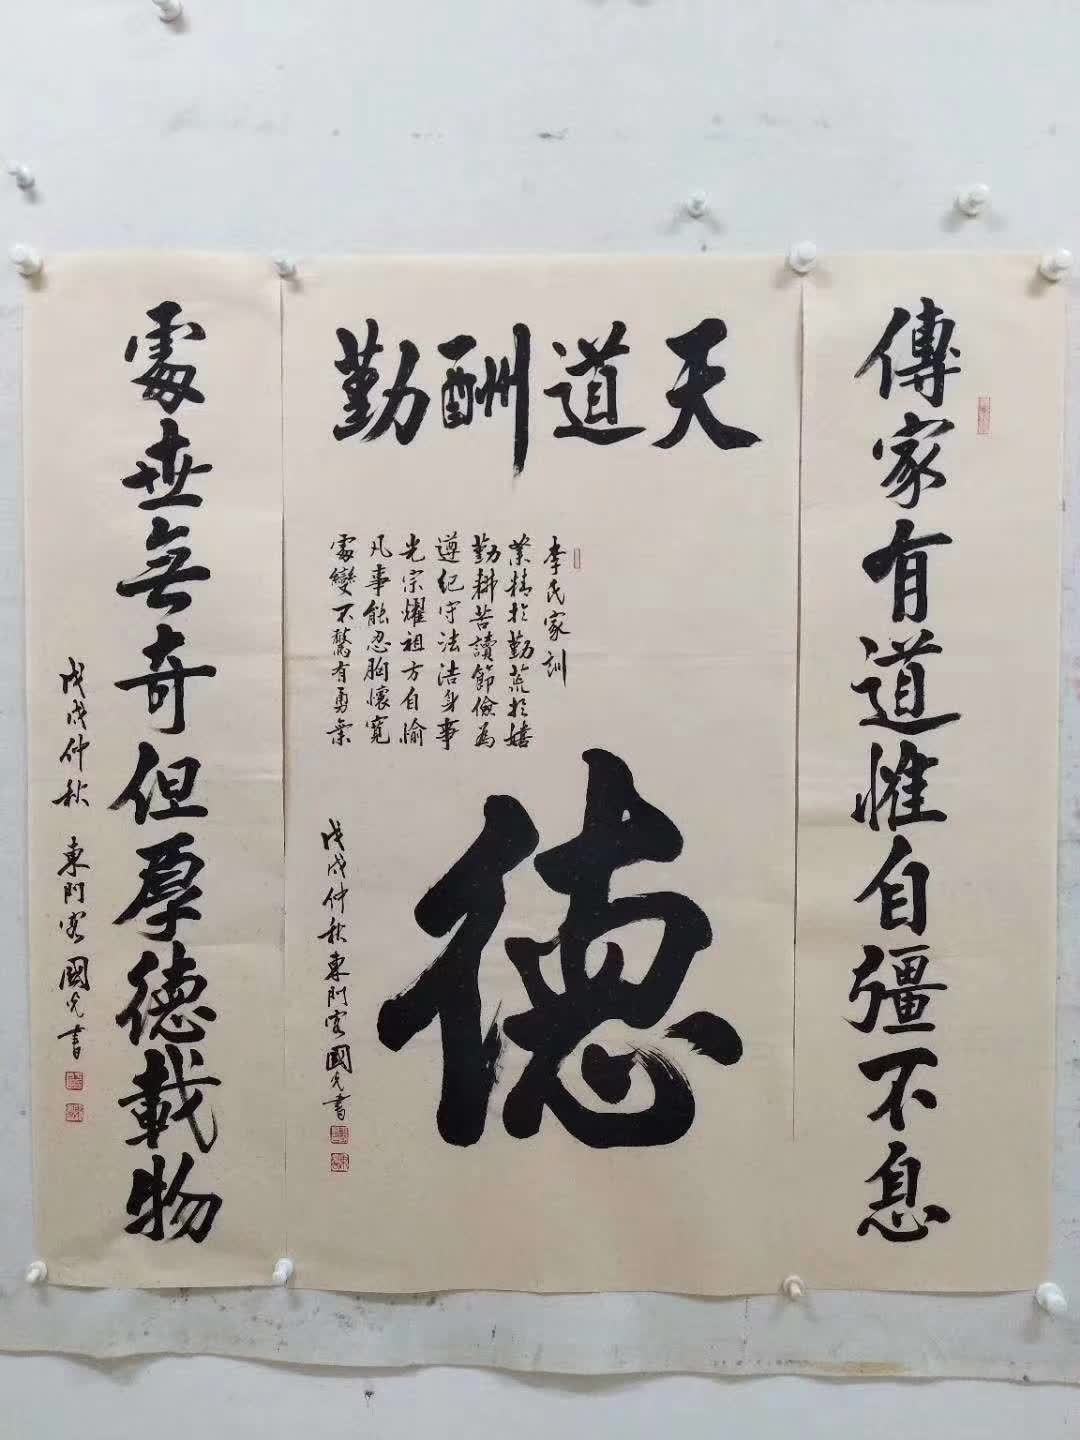 傳家有道惟自彊不息
天道酬勤
李氏家訓
業精於勤荒於嬉
勤耕苦讀節儉為
遵紀守法潔身事
光宗耀祖方自愉
凡事能忍胸懷寬
處變不驚有勇業
德
戊戌仲秋東門客國光書
處世無奇但厚德載物
戊戌仲秋 東門客國光書